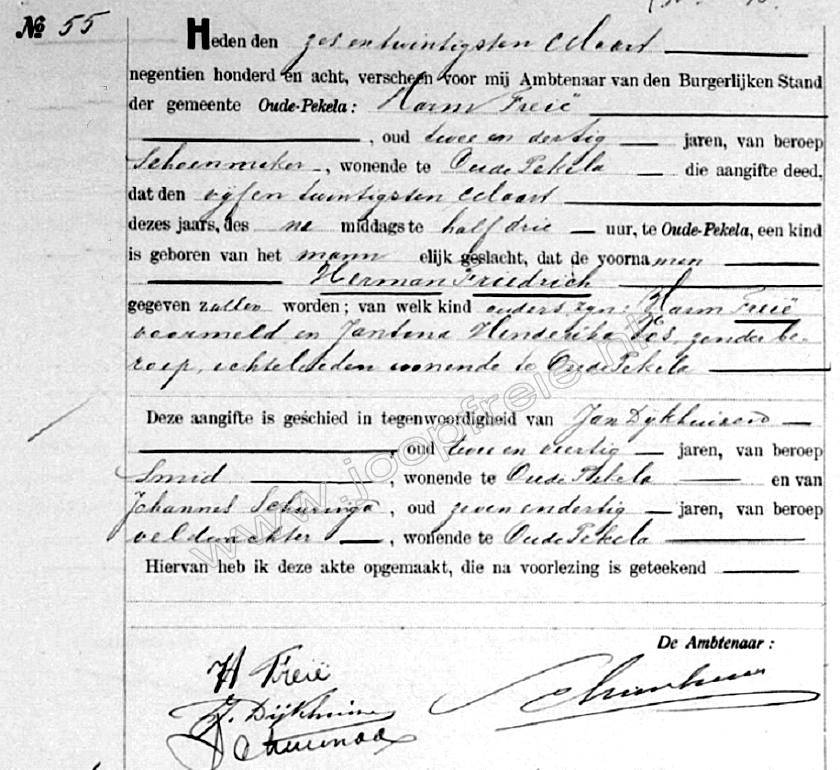 № 55
Heden den zesentwintigsten Maart
negentien honderd en acht, verscheen voor mij Ambtenaar van den Burgerlijken Stand
der gemeente Oude-Pekela: Harm Freië
, oud twee en dertig jaren, van beroep
Schoenmaker, wonende te Oude Pekela die aangifte deed,
dat den vijfen twintigsten Maart
dezes jaars, des na middags te half drie uur, te Oude-Pekela, een kind
is geboren van het mannelijk geslacht, dat de voornamen
Herman Friedrich
gegeven zullen worden; van welk kind ouders zijn: Harm Freië
voormeld en Jantena Henderika Vos, zonder be-
roep, echtelieden wonende te Oude Pekela
Deze aangifte is geschied in tegenwoordigheid van Jan Dijkhuizen
, oud twee en veertig jaren, van beroep
Smid, wonende te Oude Pekela en van
Johannes Schuringa, oud zeven en dertig jaren, van beroep
veldwachter, wonende te Oude Pekela
Hiervan heb ik deze akte opgemaakt, die na voorlezing is geteekend
De Ambtenaar:
H Freië
J. Dijkhuizen
www.joopfreie.nl